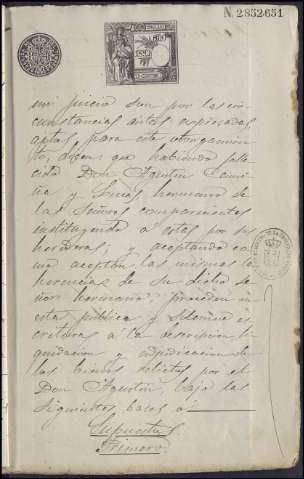 N. 2852651
mi juicio son por las cir
cunstancias antes espresadas,
aptas para este otorgamien
to, dicen: que habiendo falle
cido Don Agustin
y hermano de
las Señoras comparecientes
instituyendo a estas por su
herederas; y aceptando co
mo aceptan las mismas la
herencia de su dicho se
ñor hermano proceden
esta publica y solemne es
critura á la descripcion, li
quidacion y adjudicacion de
los bienes relictos por el
Don Agustin, bajo las
siguientes bases o
Supuestos
Primero